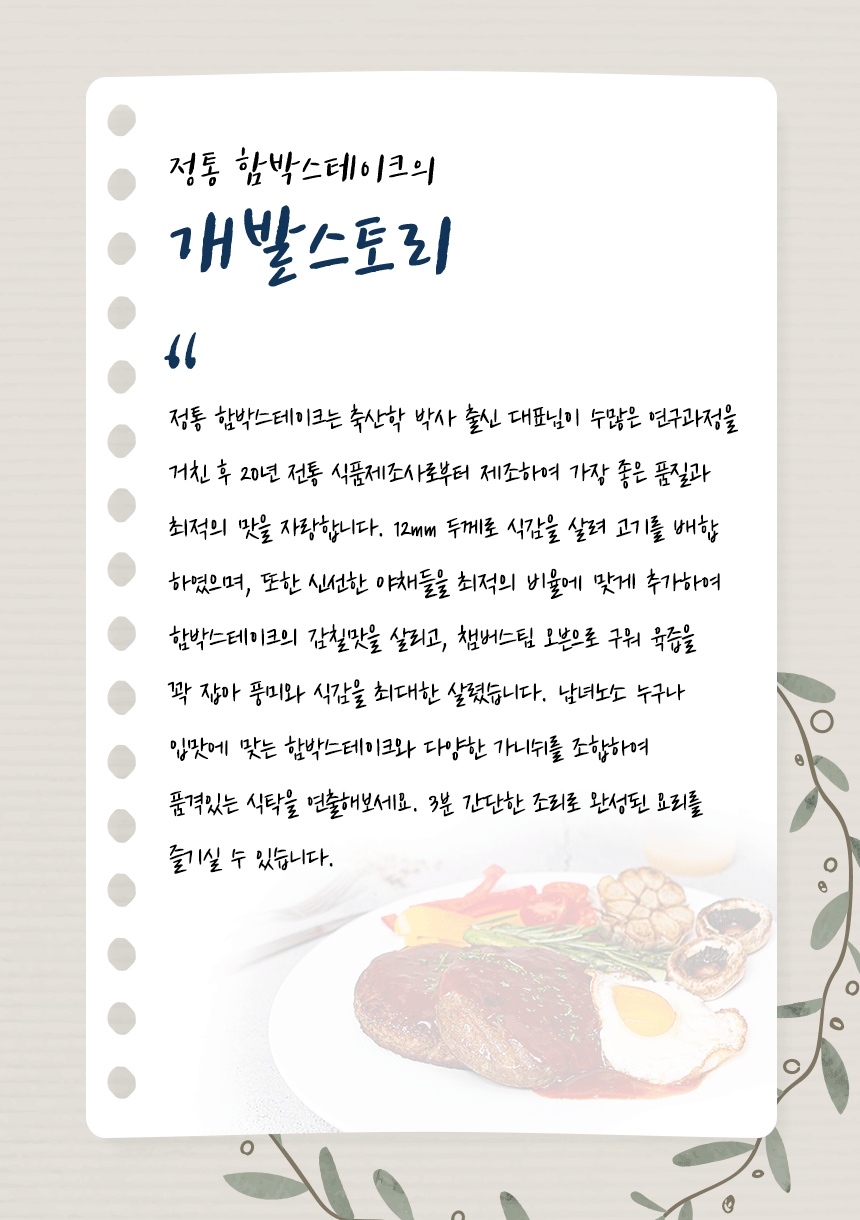 정통 함박스테이크의
개발스토리
“
정통 함박스테이크는 축산학 박사 출신 대표님이 수많은 연구과정을
거친 후 20년 전통 식품제조사로부터 제조하여 가장 좋은 품질과
최적의 맛을 자랑합니다. 12mm 두께로 식감을 살려 고기를 배합
하였으며, 또한 신선한 야채들을 최적의 비율에 맞게 추가하여
함박스테이크의 감칠맛을 살리고, 챔버스팀 오븐으로 구워 육즙을
꽉 잡아 풍미와 식감을 최대한 살렸습니다. 남녀노소 누구나
입맛에 맞는 함박스테이크와 다양한 가니쉬를 조합하여
품격있는 식탁을 연출해보세요. 3분 간단한 조리로 완성된 요리를
즐기실 수 있습니다.